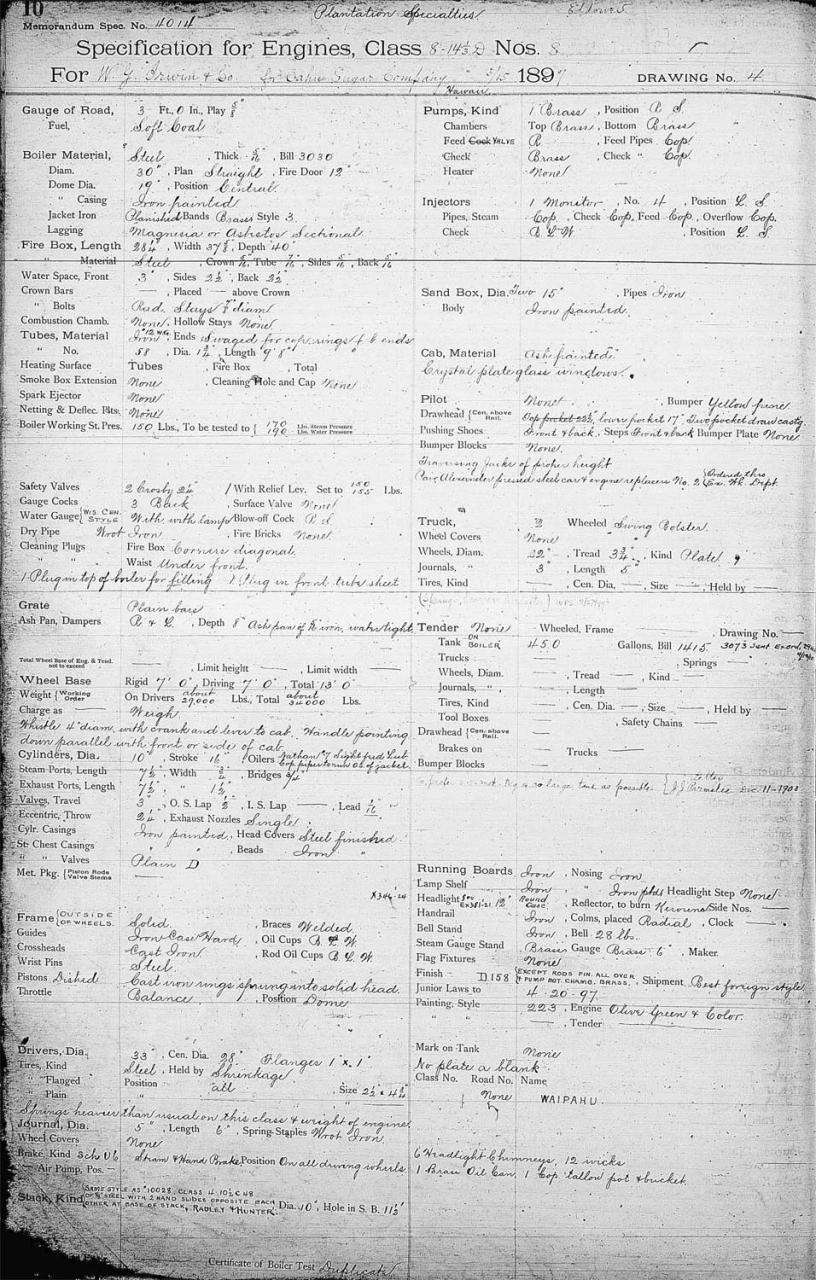 10
Plantation Specialties
Memorandum Spec. No. 4014
Specification for Engines, Class 8-14⅓ D Nos. 8
For W. G. Irwin & Co. for Oahu Sugar Company 3/15 1897 DRAWING No. 4
Hawaii
Gauge of Road, 3 Ft., 0 In., Play ⅝
Fuel, Soft Coal
Boiler Material, Steel, Thick 5/16, Bill 3030
Diam. 30", Plan Straight, Fire Door 12"
Dome Dia. 19", Position Central
" Casing Iron painted
Jacket Iron Planished Bands Brass Style 3
Lagging Magnesia or Asbestos Sectional
Fire Box, Length 28¼", Width 37⅞, Depth 40"
" Material Steel, Crown 5/16, Tube 7/16, Sides 5/16, Back 5/16
Water Space, Front 3", Sides 2½, Back 2½
Crown Bars — , Placed — above Crown
" Bolts Rad. Stays ⅞ diam
Combustion Chamb. None, Hollow Stays None
Tubes, Material Iron 12 W.G., Ends Swaged for cop. rings f. b. ends
" No. 58, Dia. 1¾, Length 9' 8"
Heating Surface Tubes , Fire Box , Total
Smoke Box Extension None , Cleaning Hole and Cap None
Spark Ejector None
Netting & Deflec. Plts. None
Boiler Working St. Pres. 150 Lbs., To be tested to 170 Lbs. Steam Pressure 190 Lbs. Water Pressure
Safety Valves 2 Crosby 2¼ / With Relief Lev. Set to 150 155 Lbs.
Gauge Cocks 3 Black , Surface Valve None
Water Gauge W/S. CEN. STYLE With, with lamp Blow-off Cock R. S.
Dry Pipe Wrot Iron , Fire Bricks None
Cleaning Plugs Fire Box Corners diagonal.
Waist Under front.
1 Plug in top of boiler for filling 1 Plug in front tube sheet
Grate Plain bars
Ash Pan, Dampers R. & L., Depth 8" Ash pan of iron, water tight
Total Wheel Base of Eng. & Tend. not to exceed — , Limit height — , Limit width —
Wheel Base Rigid 7' 0", Driving 7' 0", Total 13' 0"
Weight Working Order On Drivers about 29,000 Lbs., Total about 34000 Lbs.
Charge as — Weigh
Whistle 4" diam, with crank and lever to cab. Handle pointing
down parallel with front or side of cab
Cylinders, Dia. 10", Stroke 16", Oilers Nathan #7 Sight feed Lub. Cop. pipe to run outs. of jacket
Steam Ports, Length 7½, Width ¾", Bridges ¾"
Exhaust Ports, Length 7½, " 1½
Valves, Travel 3", O. S. Lap ½, I. S. Lap — , Lead 1/16
Eccentric, Throw 2¼, Exhaust Nozzles Single
Cylr. Casings Iron painted, Head Covers Steel finished
St. Chest Casings " , Beads Iron "
" " Valves Plain D
Met. Pkg. Piston Rods Valve Stems —
X346-24
Frame OUTSIDE OF WHEELS. Solid , Braces Welded
Guides Iron Case Hard, Oil Cups B. L. W.
Crossheads Cast Iron , Rod Oil Cups B. L. W.
Wrist Pins Steel
Pistons Dished Cast iron rings sprung into solid head.
Throttle Balance , Position Dome
Drivers, Dia. 33", Cen. Dia. 28" Flanges 1" x 1"
Tires, Kind Steel, Held by Shrinkage
" Flanged Position all , Size 2½ x 4¾
" Plain "
Springs heavier than usual on this class & weight of engine
Journal, Dia. 5", Length 6", Spring-Staples Wrot Iron
Wheel Covers None
Brake, Kind Sch. U6 Steam & Hand Brake Position On all driving wheels
— Air Pump, Pos. —
Stack, Kind SAME STYLE AS "10028, CLASS 4-10½ C 48 OF ⅛ STEEL WITH 2 HAND SLIDES OPPOSITE EACH OTHER AT BASE OF STACK, RADLEY & HUNTER. Dia. 10", Hole in S. B. 11½"
Pumps, Kind 1 Brass , Position R. S.
Chambers Top Brass, Bottom Brass
Feed Cock VALVE R , Feed Pipes Cop.
Check Brass , Check " Cop.
Heater None
Injectors 1 Monitor, No. 4 , Position L. S.
Pipes, Steam Cop., Check Cop., Feed Cop., Overflow Cop.
Check B. L. W. , Position L. S.
Sand Box, Dia. Two 15" , Pipes Iron
Body Iron painted.
Cab, Material Ash painted.
Crystal plate glass windows.
Pilot None , Bumper Yellow pine
Drawhead Cen. above Rail. Top pocket 22½, lower pocket 17" Two pocket draw castg.
Pushing Shoes Front & back, Steps Front & back Bumper Plate None
Bumper Blocks None.
Traversing Jacks of proper height
Pair Alexander pressed steel car & engine replacers No. 2 Ordered thro Ex. Wh. Dept.
Truck, 2 Wheeled Swing Bolster
Wheel Covers None
Wheels, Diam. 22" , Tread 3¾ , Kind Plate
Journals, " 3" , Length 5"
Tires, Kind — , Cen. Dia. — , Size — , Held by —
Tender None Wheeled, Frame — , Drawing No. —
Tank ON BOILER 450 Gallons, Bill 1415
Trucks — , Springs —
Wheels, Diam. — , Tread — , Kind —
Journals, " — , Length —
Tires, Kind — , Cen. Dia. — , Size — , Held by —
Tool Boxes — , Safety Chains —
Drawhead Cen. above Rail —
Brakes on — Trucks —
Bumper Blocks —
letter J. J. Parmelee Dec. 11-1900
Running Boards Iron , Nosing Iron
Lamp Shelf Iron, " Iron ptd. Headlight Step None
Headlight 12" Round Case , Reflector, to burn Kerosene Side Nos. —
Handrail Iron , Colms, placed Radial , Clock —
Bell Stand Iron, Bell 28 lbs.
Steam Gauge Stand Brass Gauge Brass 6" , Maker.
Flag Fixtures None
Finish D 158 EXCEPT RODS FIN. ALL OVER & PUMP BOT. CHAMB. BRASS. , Shipment Best foreign style
Junior Laws to 4-20-97
Painting, Style 223 , Engine Olive Green & Color.
" " — , Tender —
Mark on Tank None
No plate a blank
Class No. Road No. Name
None WAIPAHU
6 Headlight Chimneys, 12 wicks
1 Brass Oil Can, 1 Cop. tallow pot & bucket
Certificate of Boiler Test Duplicate